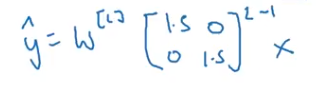 ŷ = W^[L] [1.5 0; 0 1.5]^L-1 x